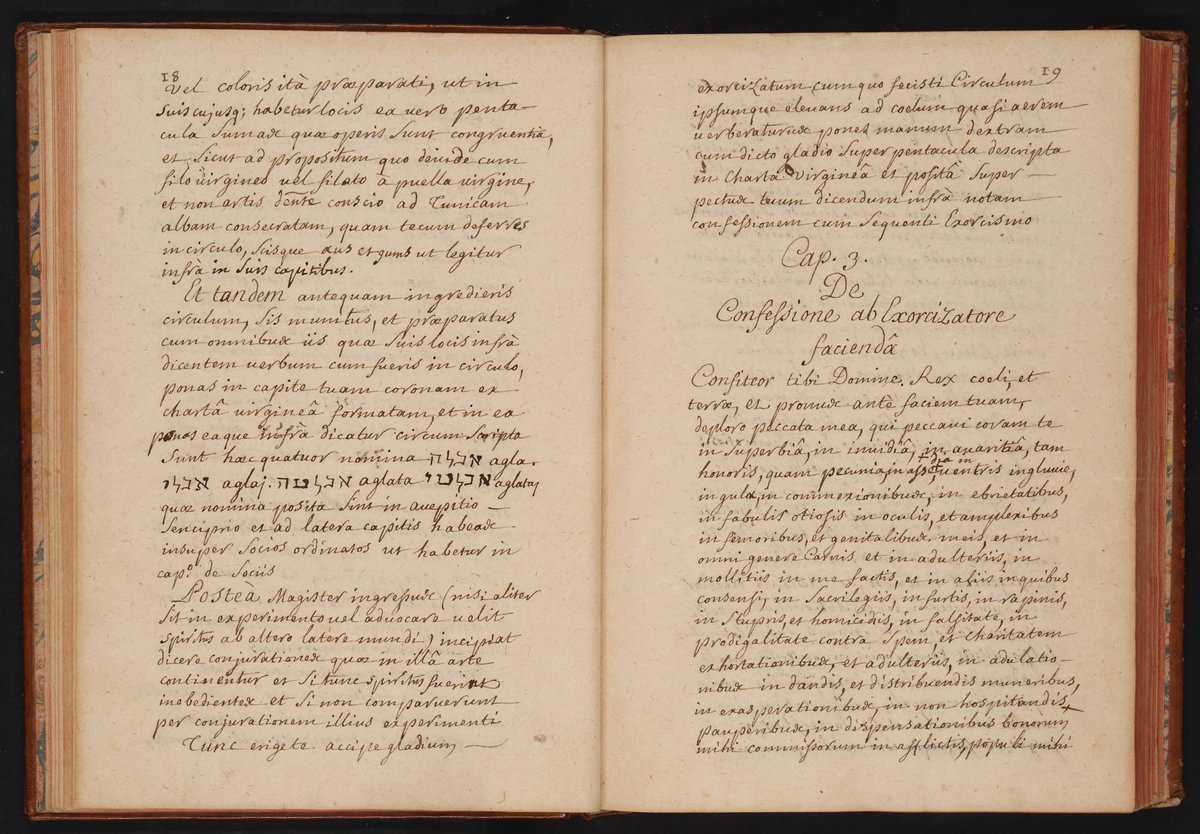 18
Vel coloris ità præparati, ut in
suis cujusq; habetur locis ea vero penta-
cula sumas quæ operis sunt congruentia,
et sicut ad propositum quo divide cum
filo virgineo vel filato à puella virgine,
et non artis conscio ad Tunicam
albam consecratam, quam tecum deferres
in circulo, scisque ut legitur
infrà in suis capitibus.
Et tandem antequam ingredieris
circulum, sis munitus, et præparatus
cum omnibus iis quæ suis locis infrà
dicentem verbum cum fueris in circulo,
ponas in capite tuam coronam ex
chartâ virgineâ formatam, et in ea
ponas eaque infrà dicatur circum scripta
sunt hæc quatuor nomina אכלה agla.
אכלי aglaj. אכלטה aglata אכלטי aglataj
quæ nomina posita sint in
senciprio et ad latera capitis habeas
insuper socios ordinatos ut habetur in
cap.º de sociis
Posteà Magister ingressus (nisi aliter
sit in experimento vel advocare velit
spiritus ab altero latere mundi) incipiat
dicere conjurationes quæ in illâ arte
continentur et si tunc spiritus fuerint
inobedientes et si non comparuerunt
per conjurationem illius experimenti
Tunc erigete accipe gladium —
19
exorcizatum cum quo fecisti Circulum
ipsumque elevans ad coelum quasi aerem
verberaturus pones manum dextram
cum dicto gladio super pentacula descripta
in chartâ virgineâ et positâ super —
pectus tuum dicendum infrà notam
confessionem cum sequenti Exorcismo
Cap. 3.
De
Confessione ab Exorcizatore
faciendâ
Confiteor tibi Domine. Rex coeli, et
terræ, et pronus ante faciem tuam,
deploro peccata mea, qui peccavi coram te
in superbiâ, in invidiâ, in avaritiâ, tam
honoris, quam pecunia, in ventris ingluvie,
in gula, in commexionibus, in ebrietatibus,
in fabulis otiosis in oculis, et amplexibus
in femoribus, et genitalibus. meis, et in
omni genere Carnis et in adulteriis, in
mollitiis in me factis, et in aliis in quibus
consensi, in sacrilegiis, in furtis, in rapinis,
in stupris, et homicidis, in falsitate, in
prodigalitate contra spem, et charitatem
exhortationibus, et adulteriis, in adulatio-
nibus in dandis, et distribuendis muneribus,
in exasperationibus, in non hospitandis
pauperibus, in dispensationibus bonorum
mihi commissorum in afflictis, populi mihi